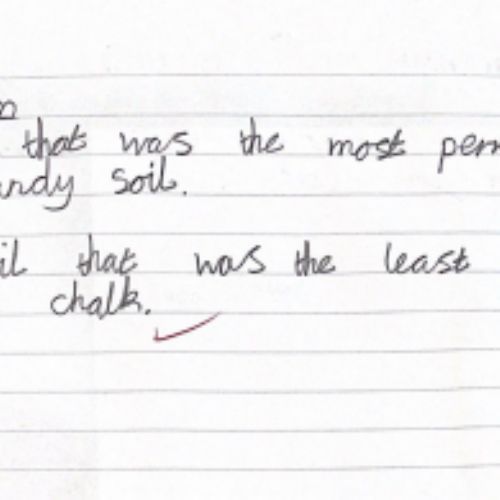 n
that was the most perm
andy soil.
il that was the least
chalk.